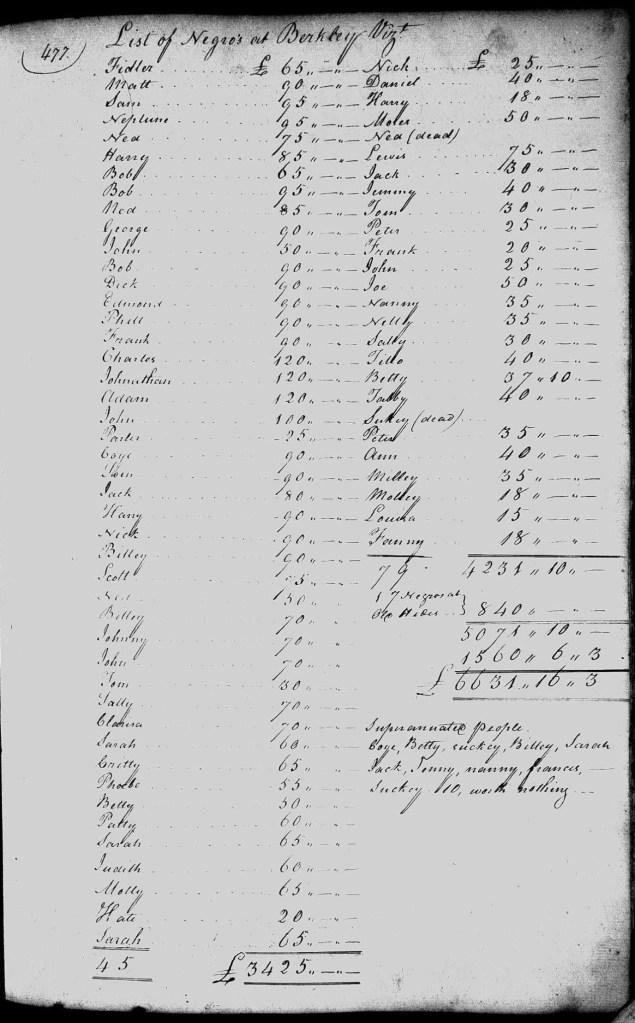 477.
List of Negro's at Berkley Vizt
Fidler £ 65 " — " —
Matt 90 " — " —
Sam 95 " — " —
Neptune 95 " — " —
Ned 75 " — " —
Harry 85 " — " —
Bob 65 " — " —
Bob 95 " — " —
Ned 85 " — " —
George 90 " — " —
John 50 " — " —
Bob 90 " — " —
Dick 90 " — " —
Edmond 90 " — " —
Phill 90 " — " —
Frank 90 " — " —
Charles 120 " — " —
Johnathan 120 " — " —
Adam 120 " — " —
John 100 " — " —
Porter 25 " — " —
Coye 90 " — " —
Sam 90 " — " —
Jack 80 " — " —
Harry 90 " — " —
Nick 90 " — " —
Billey 90 " — " —
Scott 75 " — " —
Ned 50 "
Billey 70 "
Johnny 70 "
John 70 "
Tom 30 "
Sally 70 " — "
Clarisa 70 " — "
Sarah 60 " — "
Gritty 65 " — "
Phoebe 55 " — "
Betty 50 " — "
Patty 60 " — "
Sarah 65 " — "
Judith 60 " — "
Molly 65 " — "
Kate 20 " — "
Sarah 65 " — "
45 £ 3425 " — " —
Nick £ 25 " — " —
Daniel 40 " — " —
Harry 18 " — " —
Moses 50 " — " —
Ned (dead)
Lewis 75 " — " —
Jack 30 " — " —
Jemmy 40 " — " —
Tom 30 " — " —
Peter 25 " — " —
Frank 20 " — " —
John 25 " — " —
Joe 50 " — " —
Nanny 35 " — " —
Nelly 35 " — " —
Sally 30 " — " —
Tillo 40 " — " —
Betty 37 " 10 " —
Tabby 40 " — " —
Sukey (dead)
Peter 35 " — " —
Ann 40 " — " —
Milley 35 " — " —
Molley 18 " — " —
Louisa 15 " — " —
Fanny 18 " — " —
79 4231 " 10 " —
17 Negros at
840 " — " —
5071 " 10 " —
1560 " 6 " 3
£ 6631 " 16 " 3
Superannuated people
Coye, Betty, suckey, Billey, Sarah
Jack, Jenny, nanny, frances, —
Suckey 10, worth nothing —